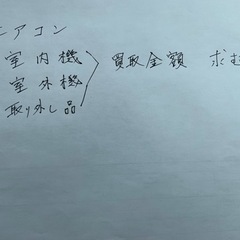 エアコン
室内機
室外機 買取金額 求む
取り外し品